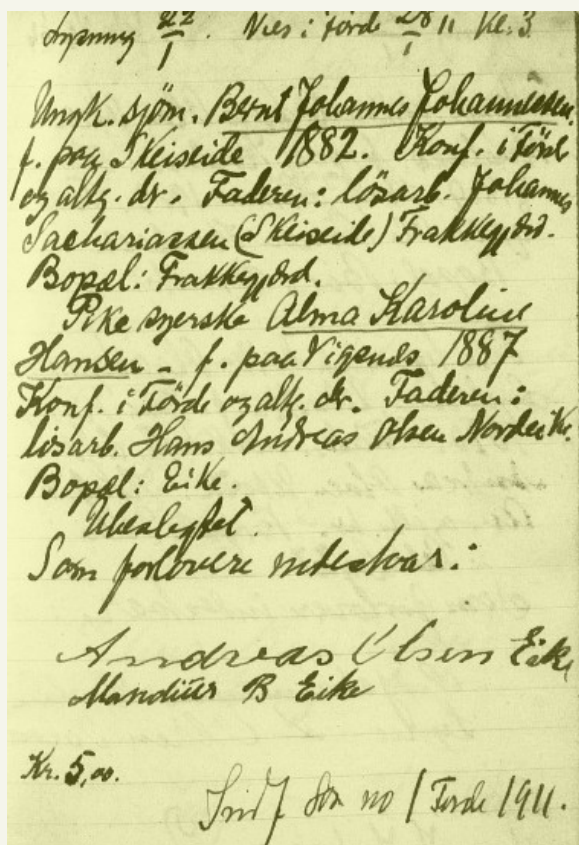 Lysning 22/1. Vies i Förde 28/1 11 Kl. 3
Ungk. sjöm. Bernt Johannes Johannessen,
f. paa Skeiseide 1882. Konf. i Förde
og altg. dr. Faderen: lösarb. Johannes
Sachariassen (Skeiseide) Frakkagjerd.
Bopæl: Frakkagjerd.
Pike syerske Alma Karoline
Hansen - f. paa Vigends 1887
Konf. i Förde og altg. dr. Faderen:
lösarb. Hans Andreas Olsen Nordeike.
Bopæl: Eike.
Ubeslegtet.
Som forlovere indestaar:
Andreas Olsen Eike
Mandius B Eike
Kr. 5,00.
Indf som no 1 Förde 1911.